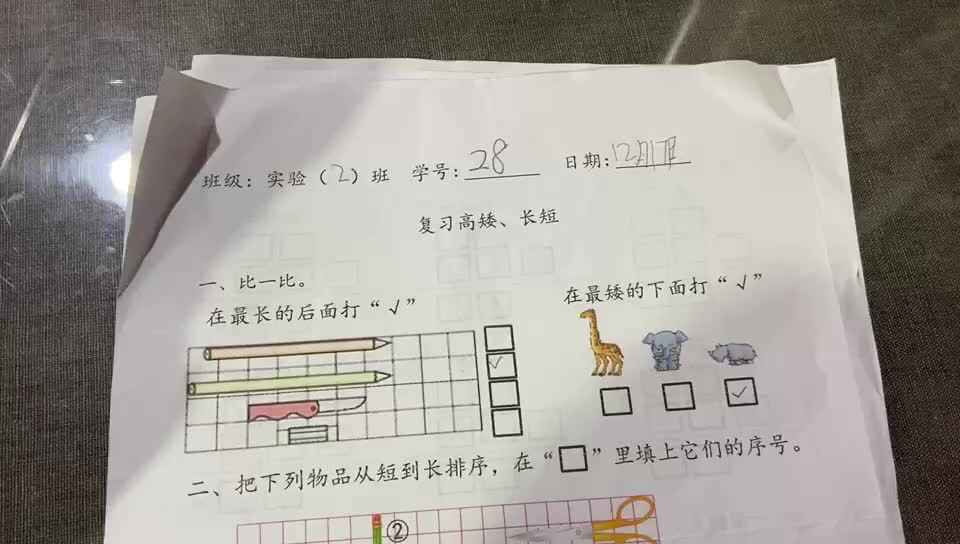 班级：实验（2）班 学号：28 日期：12月17日
复习高矮、长短
一、比一比。
在最长的后面打“√”
在最矮的下面打“√”
√
√
二、把下列物品从短到长排序，在“□”里填上它们的序号。
②